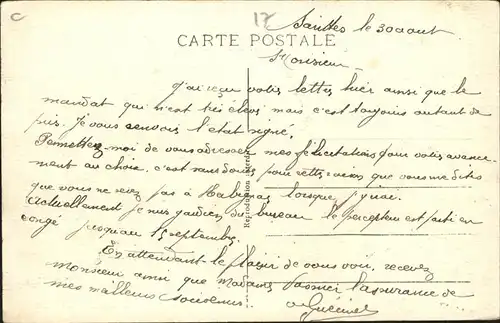 C
17
Saintes le 30 aout
CARTE POSTALE
Monsieur
J'ai reçu votre lettre hier ainsi que le
mandat qui n'est très élevé mais c'est toujours autant de
pris. Je vous renvois l'etat signé.
Permettez-moi de vous adresser mes félicitations pour votre avance-
ment au choix. c'est sans doute pour cette raison que vous me dites
que vous ne serez pas à lorsque j'irai.
Actuellement je suis gardien du bureau le percepteur est parti en
congé jusqu'au 15 septembre.
En attendant le plaisir de vous voir, recevez
monsieur ainsi que Madame l'assurance de
mes meilleurs souvenirs.
Reproduction Interdite